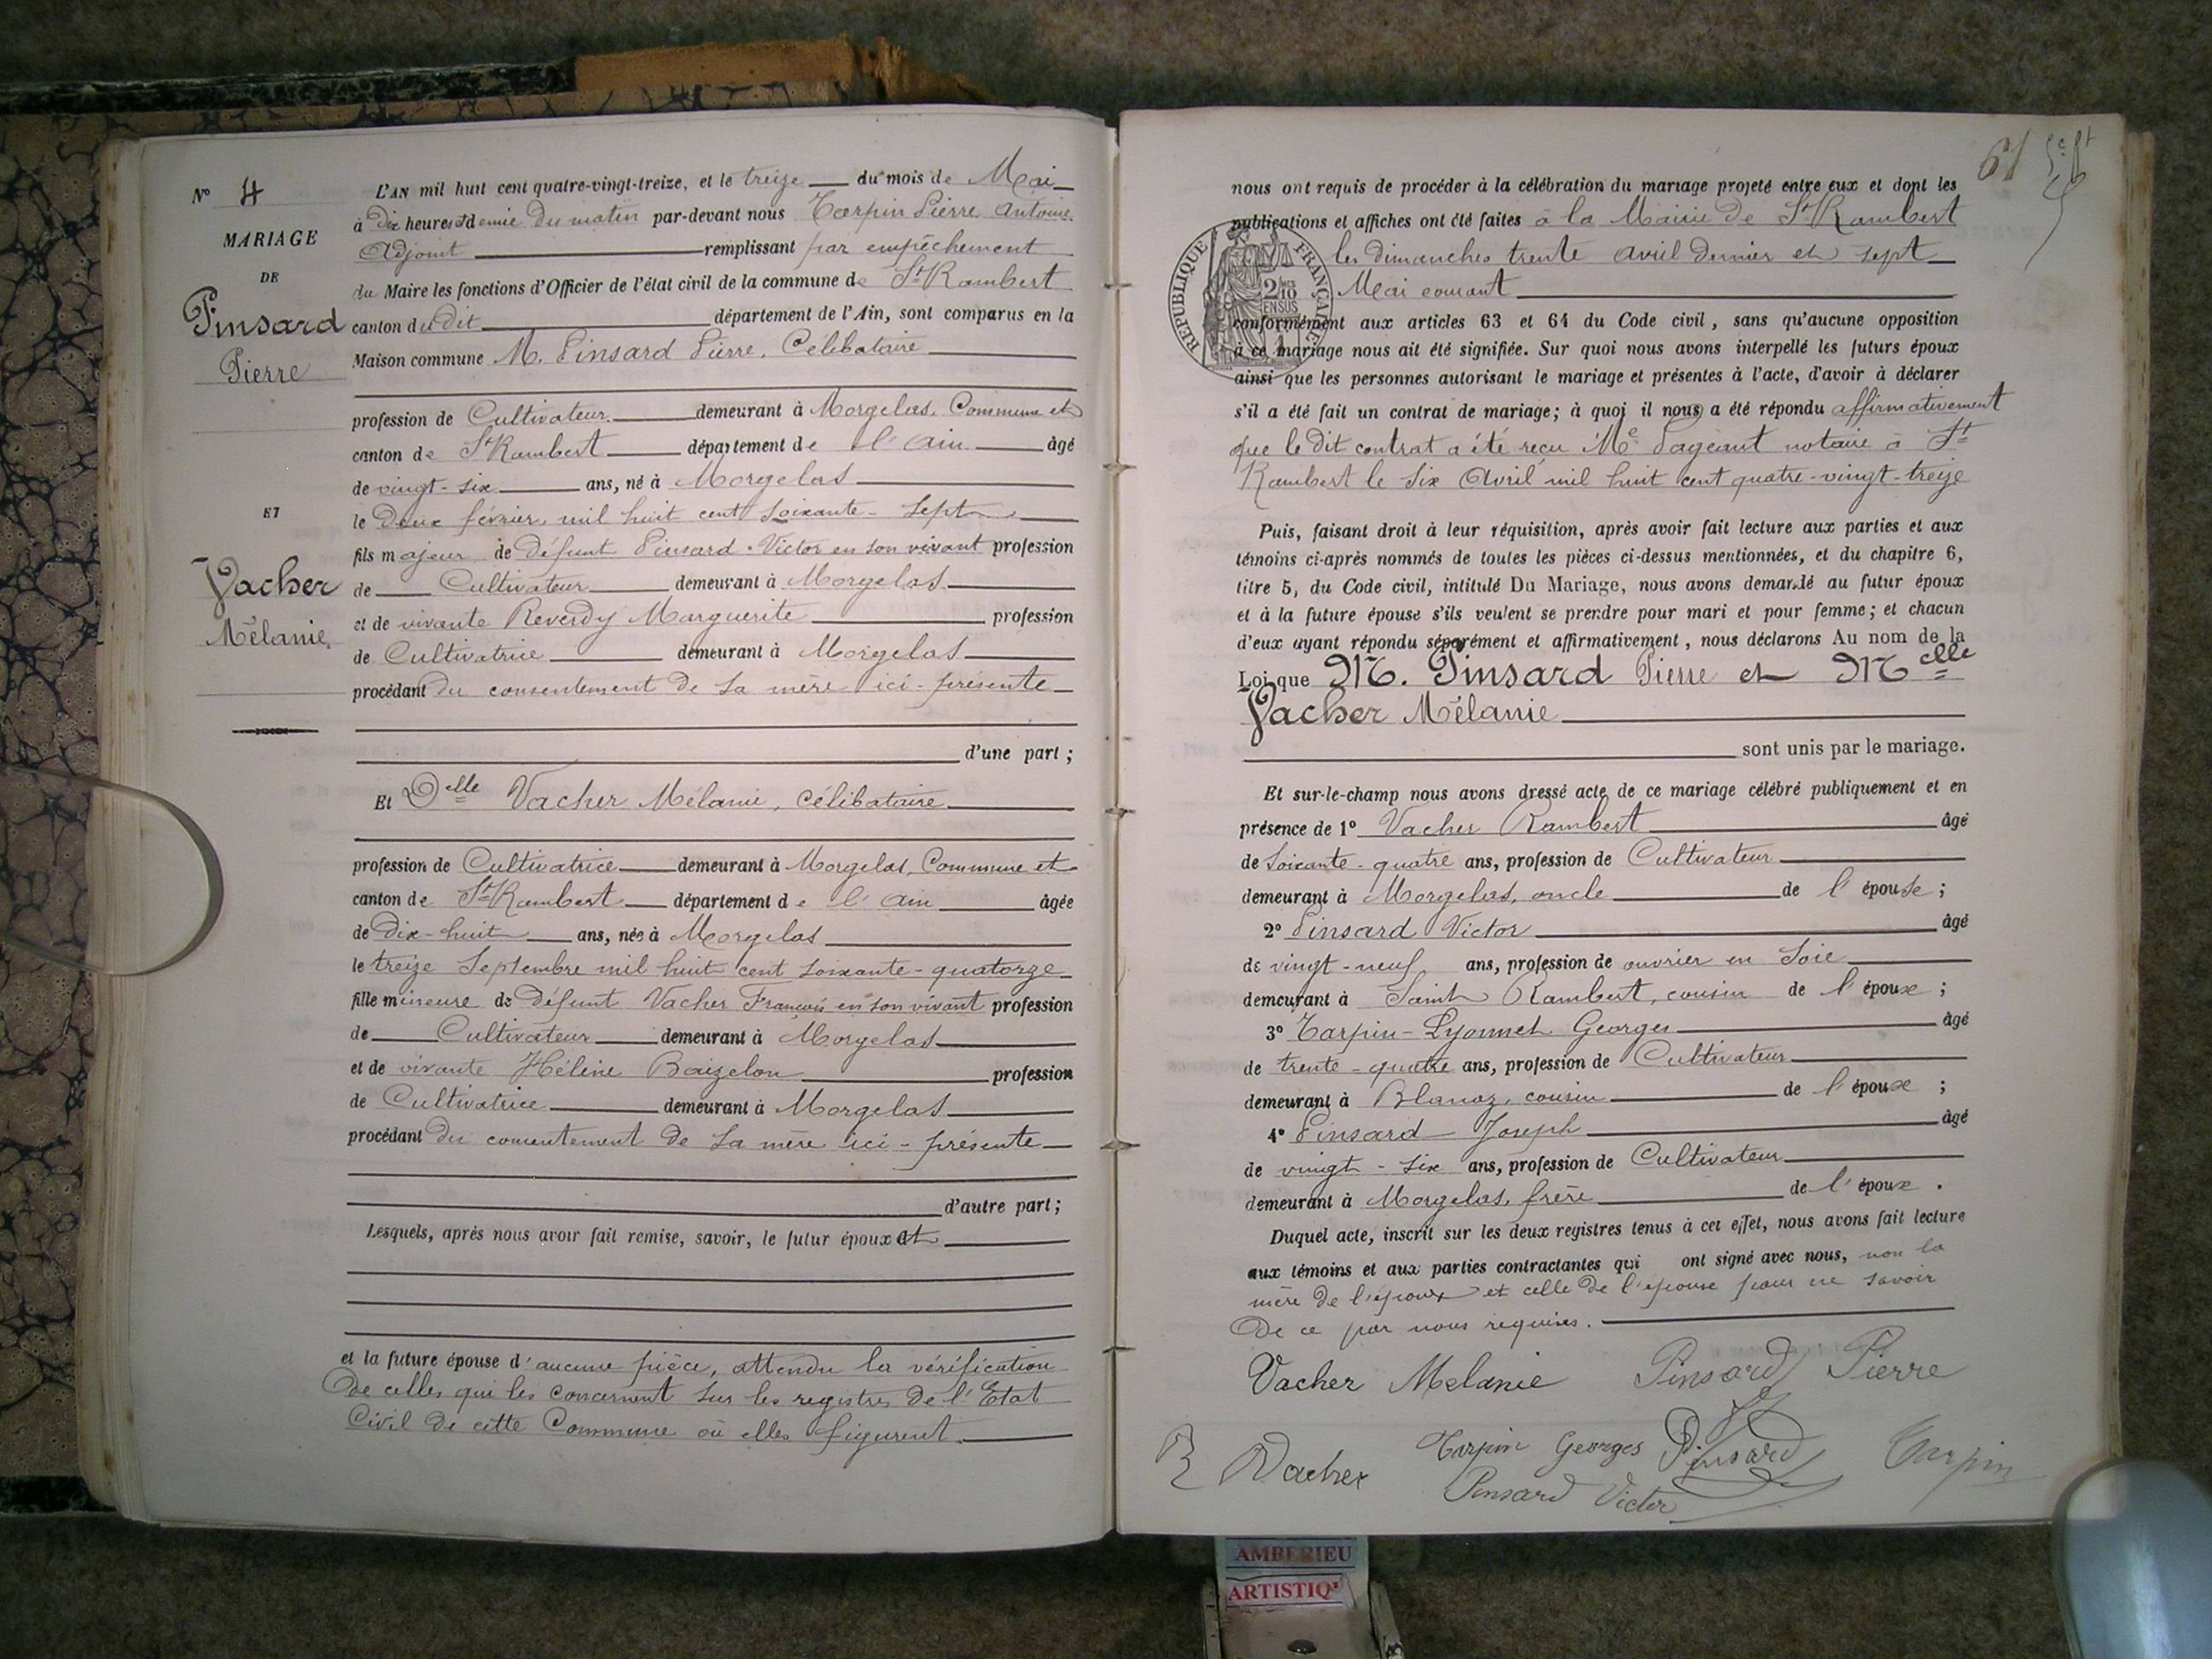 N° 4
MARIAGE
DE
Pinsard
Pierre
ET
Vacher
Mélanie.
L'AN mil huit cent quatre-vingt-treize, et le treize du mois de Mai
à dix heures et demie du matin par-devant nous Tarpin Pierre Antoine.
Adjoint remplissant par empêchement
du Maire les fonctions d'Officier de l'état civil de la commune de St Rambert
canton du dit département de l'Ain, sont comparus en la
Maison commune M. Pinsard Pierre, Célibataire
profession de Cultivateur demeurant à Morgelas, Commune et
canton de St Rambert département de l'Ain âgé
de vingt-six ans, né à Morgelas
le deux février mil huit cent soixante-sept
fils majeur de défunt Pinsard Victor en son vivant profession
de Cultivateur demeurant à Morgelas
et de vivante Reverdy Marguerite profession
de Cultivatrice demeurant à Morgelas
procédant du consentement de sa mère ici-présente
d'une part ;
Et Delle Vacher Mélanie, célibataire
profession de Cultivatrice demeurant à Morgelas, Commune et
canton de St Rambert département de l'Ain âgée
de dix-huit ans, née à Morgelas
le treize Septembre mil huit cent soixante-quatorze
fille mineure de défunt Vacher François en son vivant profession
de Cultivateur demeurant à Morgelas
et de vivante Hélène Baizelon profession
de Cultivatrice demeurant à Morgelas
procédant du consentement de sa mère ici-présente
d'autre part ;
Lesquels, après nous avoir fait remise, savoir, le futur époux et
et la future épouse d'aucune pièce, attendu la vérification
de celles qui les concernent sur les registres de l'Etat
Civil de cette Commune où elles figurent.
61
nous ont requis de procéder à la célébration du mariage projeté entre eux et dont les
publications et affiches ont été faites à la Mairie de St Rambert
les dimanches trente avril dernier et sept
Mai courant
RÉPUBLIQUE FRANÇAISE
2/10 EN SUS
conformément aux articles 63 et 64 du Code civil, sans qu'aucune opposition
à ce mariage nous ait été signifiée. Sur quoi nous avons interpellé les futurs époux
ainsi que les personnes autorisant le mariage et présentes à l'acte, d'avoir à déclarer
s'il a été fait un contrat de mariage ; à quoi il nous a été répondu affirmativement
que le dit contrat a été reçu Me Pageant notaire à St
Rambert le six Avril mil huit cent quatre-vingt-treize
Puis, faisant droit à leur réquisition, après avoir fait lecture aux parties et aux
témoins ci-après nommés de toutes les pièces ci-dessus mentionnées, et du chapitre 6,
titre 5, du Code civil, intitulé Du Mariage, nous avons demandé au futur époux
et à la future épouse s'ils veulent se prendre pour mari et pour femme ; et chacun
d'eux ayant répondu séparément et affirmativement, nous déclarons Au nom de la
Loi que M. Pinsard Pierre et Melle
Vacher Mélanie
sont unis par le mariage.
Et sur-le-champ nous avons dressé acte de ce mariage célébré publiquement et en
présence de 1° Vacher Rambert âgé
de soixante-quatre ans, profession de Cultivateur
demeurant à Morgelas, oncle de l'épouse ;
2° Pinsard Victor âgé
de vingt-neuf ans, profession de ouvrier en Soie
demeurant à Saint Rambert, cousin de l'époux ;
3° Tarpin-Lyonnet Georges âgé
de trente-quatre ans, profession de Cultivateur
demeurant à Blanaz, cousin de l'époux ;
4° Pinsard Joseph âgé
de vingt-six ans, profession de Cultivateur
demeurant à Morgelas, frère de l'époux.
Duquel acte, inscrit sur les deux registres tenus à cet effet, nous avons fait lecture
aux témoins et aux parties contractantes qui ont signé avec nous, non la
mère de l'époux et celle de l'épouse pour ne savoir
de ce par nous requises.
Vacher Melanie Pinsard Pierre
R Vacher Tarpin Georges Pinsard Tarpin
Pinsard Victor
AMBERIEU
ARTISTIQ